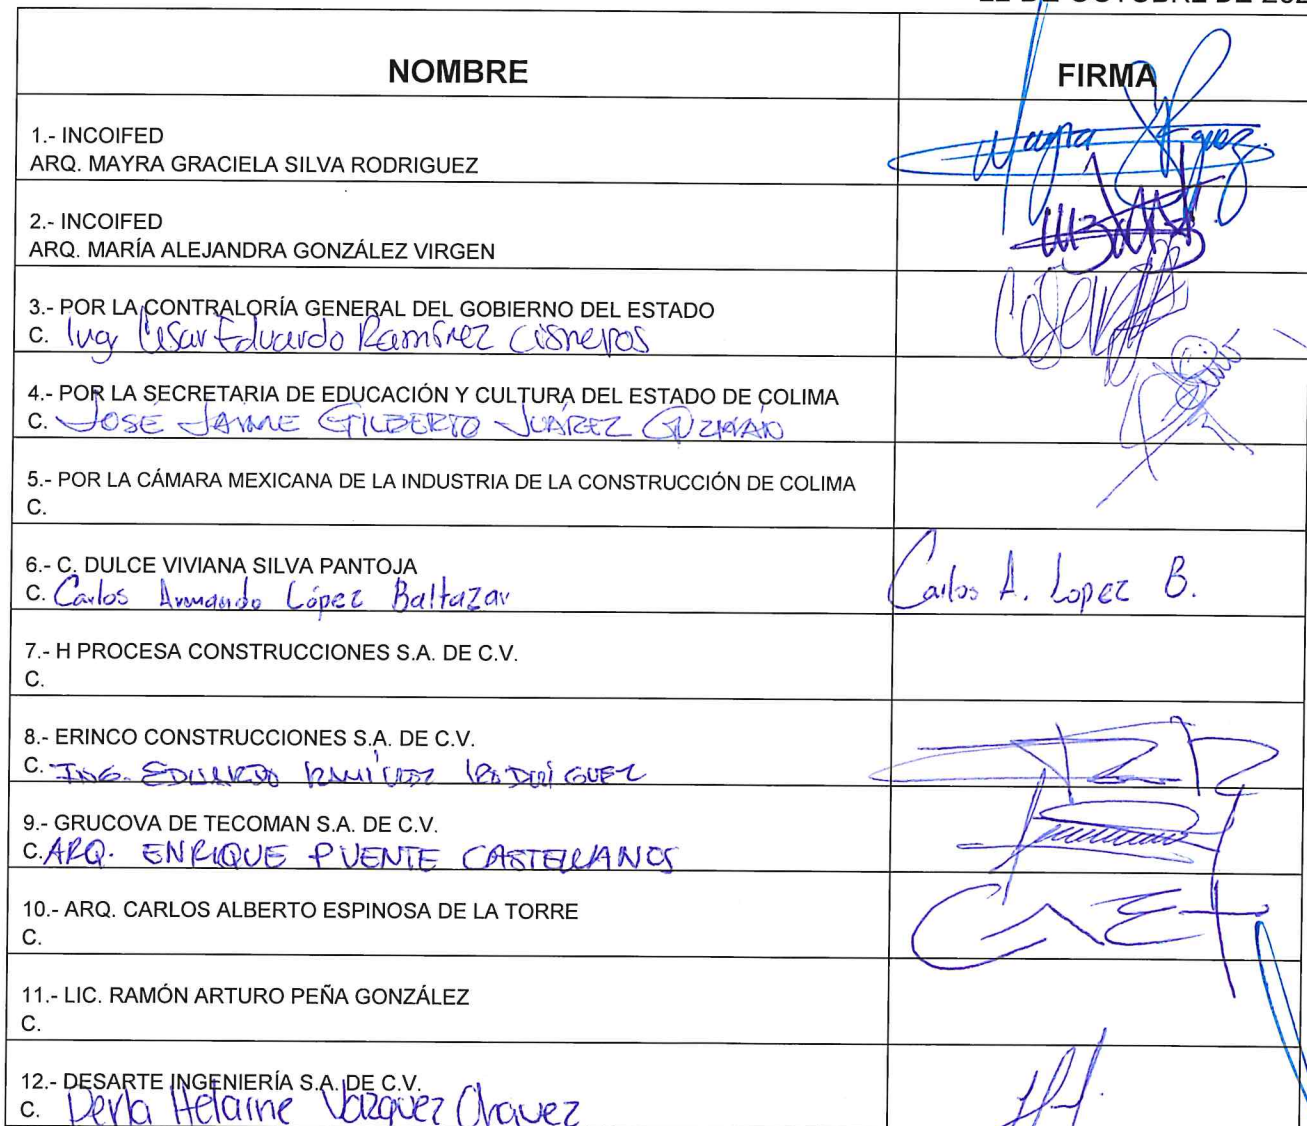 NOMBRE FIRMA
1.- INCOIFED
ARQ. MAYRA GRACIELA SILVA RODRIGUEZ
2.- INCOIFED
ARQ. MARÍA ALEJANDRA GONZÁLEZ VIRGEN
3.- POR LA CONTRALORÍA GENERAL DEL GOBIERNO DEL ESTADO
C. Ing Cesar Eduardo Ramírez Cisneros
4.- POR LA SECRETARIA DE EDUCACIÓN Y CULTURA DEL ESTADO DE COLIMA
C. JOSÉ JAIME GILBERTO JUÁREZ GUZMÁN
5.- POR LA CÁMARA MEXICANA DE LA INDUSTRIA DE LA CONSTRUCCIÓN DE COLIMA
C.
6.- C. DULCE VIVIANA SILVA PANTOJA
C. Carlos Armando López Baltazar Carlos A. Lopez B.
7.- H PROCESA CONSTRUCCIONES S.A. DE C.V.
C.
8.- ERINCO CONSTRUCCIONES S.A. DE C.V.
C. ING. EDUARDO RAMÍREZ RODRÍGUEZ
9.- GRUCOVA DE TECOMAN S.A. DE C.V.
C. ARQ. ENRIQUE PUENTE CASTELLANOS
10.- ARQ. CARLOS ALBERTO ESPINOSA DE LA TORRE
C.
11.- LIC. RAMÓN ARTURO PEÑA GONZÁLEZ
C.
12.- DESARTE INGENIERÍA S.A. DE C.V.
C. Vázquez Chavez